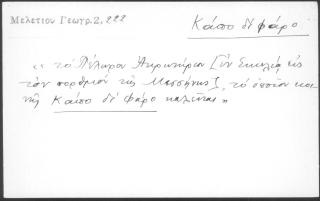 Μελετίου Γεωγρ. 2, 222
Κάπο δὶ φάρο
« τὸ Πέλωρον Ἀκρωτήριον [ἐν Σικελίᾳ εἰς
τὸν πορθμὸν τῆς Μεσσήνης], τὸ ὁποῖον κοι-
νῶς Κάπο δὶ φάρο καλεῖται »